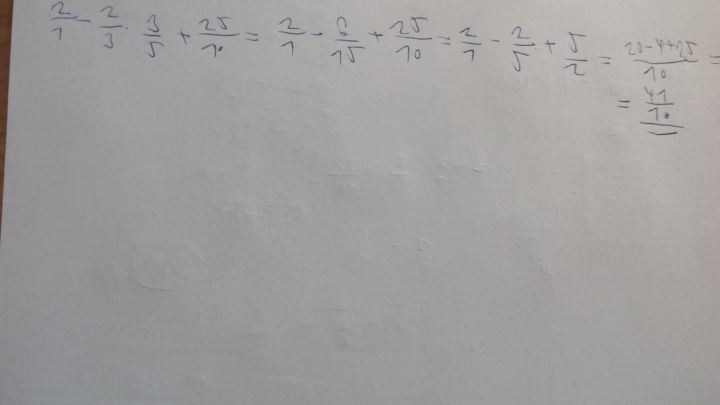 2/1 - 2/3 · 3/5 + 25/10 = 2/1 - 6/15 + 25/10 = 2/1 - 2/5 + 5/2 = (20-4+25)/10 =
= 41/10